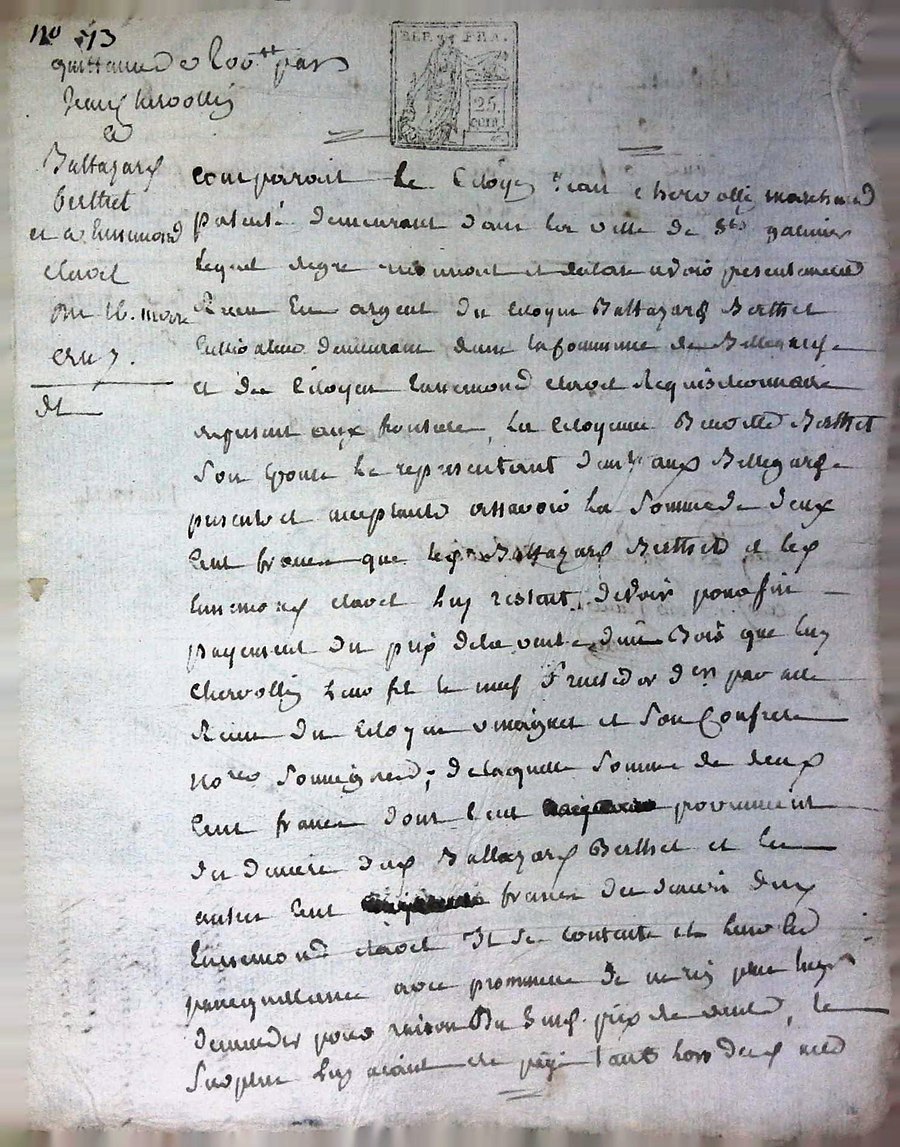 no 73
quittance de 200 tt par
Jean Chervollin
a
Baltazard
Berthet
et a Ennemond
clavel
REP. FRA.
25
cent.
comparait Le Citoyen Jean chervollin marchand
patenté demeurant dans la ville de St galmier
lequel de gré reconnoit et declare avoir presentement
Recu En argent du citoyen Baltazard Berthet
Cultivateur demeurant dans la Commune de Bellegarde
et du Citoyen Ennemond clavel Requisitionnaire
aux frontiere, La citoyenne Benoitte Berthet
son Epouse Le representant demt aux Bellegarde
presente et acceptante assavoir La Somme de deux
Cent francs que led Baltazard Berthet et led
Ennemond clavel Luy restent devoir pour fin
payement du prix de la vente d'un Bois que Luy
Chervollin Leur fit le neuf Fructidor dern par acte
Recu du Citoyen et Son Confrere
nores Soussigned; de laquelle Somme de deux
Cent francs dont Cent provenant
du denier dud Baltazard Berthet et Les
autres Cent francs du denier dud
Ennemond clavel Il Se contente et Les en
quittance avec promesse de ne rien plus Leur
demander pour raison du Susd. prix de vente, Le
Surplus Luy aiant ete payé tant Lors dud acte